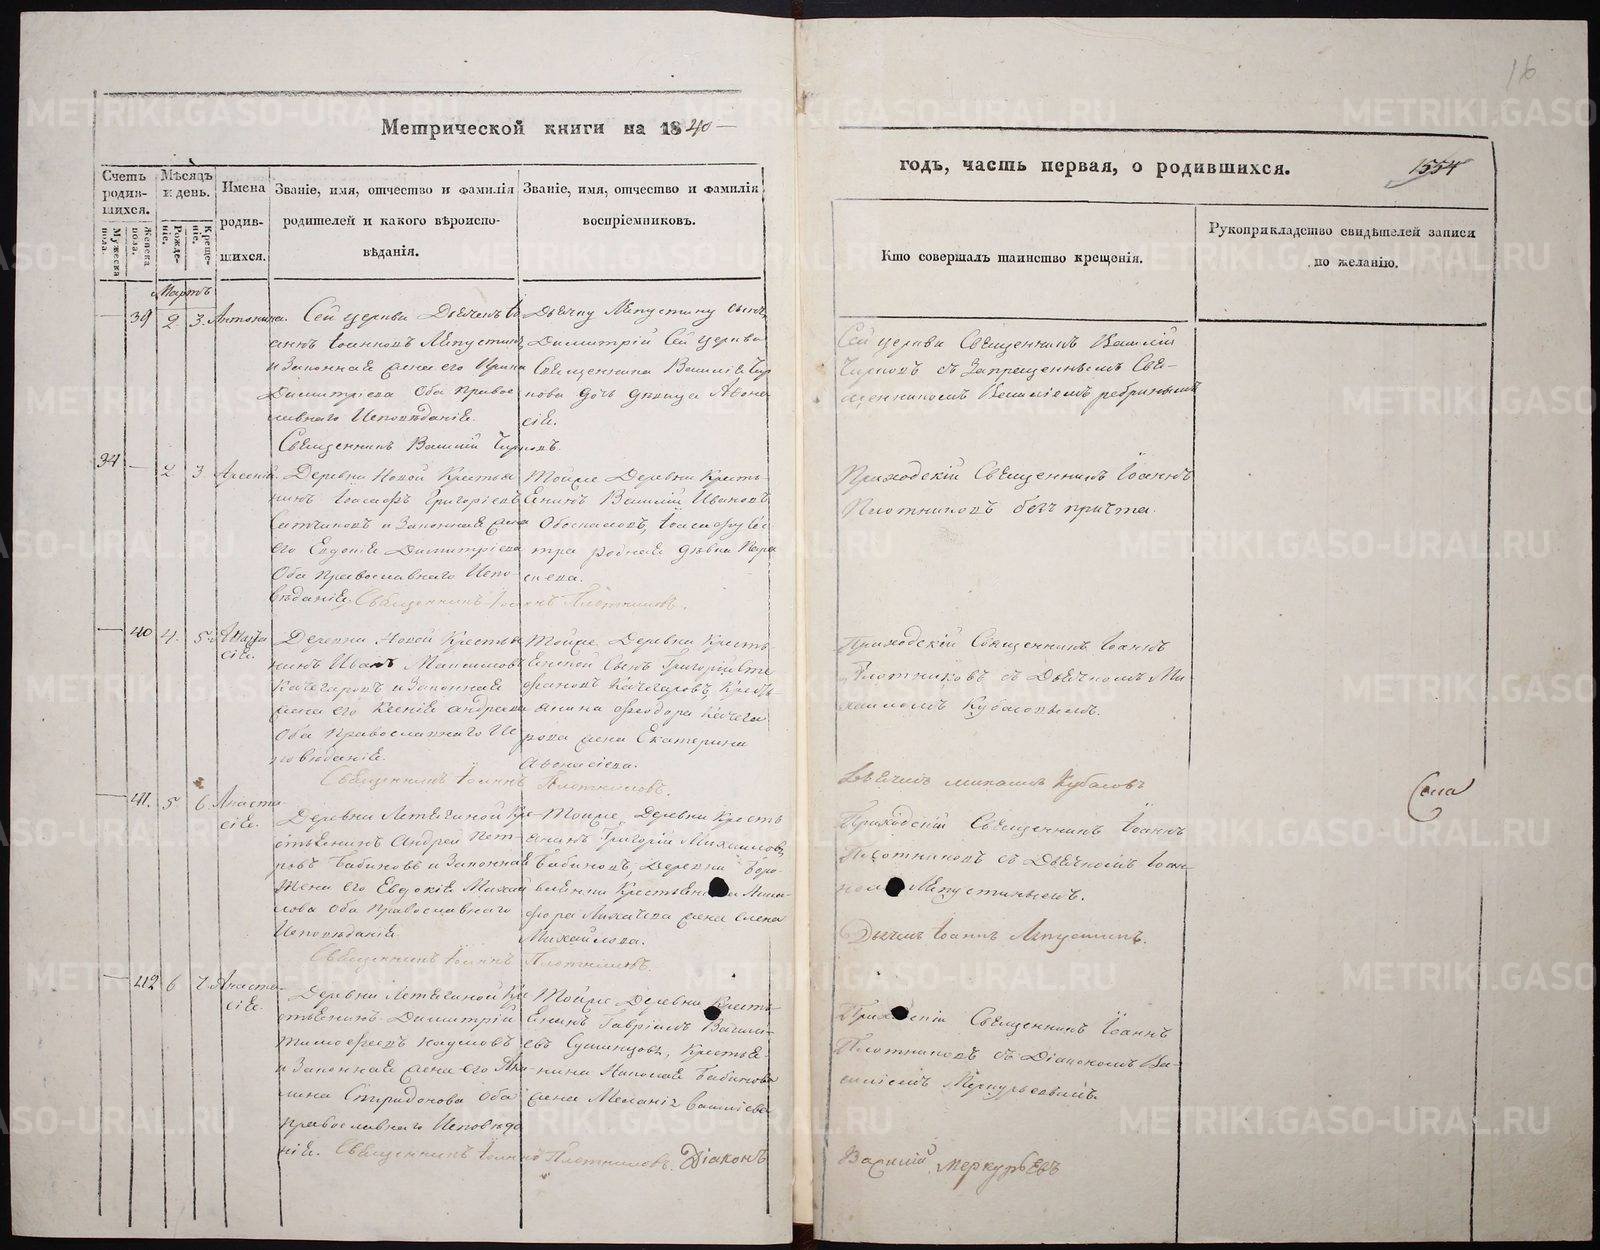 16
Метрической книги на 1840
годъ, часть первая, о родившихся.
1554
Счетъ родив-шихся.
Мужеска пола.
Женска пола.
Мѣсяцъ и день.
Рожде-ніе.
Креще-ніе.
Имена родив-шихся.
Званіе, имя, отчество и фамилія
родителей и какого вѣроиспо-
вѣданія.
Званіе, имя, отчество и фамилія
воспріемниковъ.
Кто совершалъ таинство крещенія.
Рукоприкладство свидѣтелей записи
по желанію.
Мартъ
39 2 3 Антонина.
Сей церкви Дьячекъ Іо
аннъ Іоанновъ Лепустинъ
и Законная жена его Ирина
Димитріева Оба Правос
лавнаго Исповѣданіе.
Священникъ Василій Чирковъ.
Дьячку Лепустину сынъ
Димитрій Сей церкви
Священника Василіе Чир
кова дочь дѣвица Афона
сіе.
Сей церкви Священникъ Василій
Чирковъ съ Запрещеннымъ Све-
щенникомъ Василіемъ
34 2 3 Арсеній.
Деревни Новой Крестья
нинъ Іоасафъ Григоріевъ
и Законная жена
его Евдокіе Димитріева
Оба Православнаго Испо-
вѣданіе. Священникъ Іоаннъ Плотниковъ.
Тойже Деревни Кресть
Енинъ Василій Ивановъ
Іоасафу сес
тра родная дѣвка Пара
скева.
Приходскій Священникъ Іоаннъ
Плотниковъ безъ причта.
40 4 5 Анаста
сіе.
Деревни Новой Крестья
нинъ Иванъ Максимовъ
Качегаровъ и Законная
жена его Ксеніе Андреева
Оба Православнаго Ис
повѣданіе.
Священникъ Іоаннъ Плотниковъ.
Тойже Деревни Кресть
Енской Сынъ Григорій Сте
фановъ Качегаровъ, Кресть-
янина Феодора Качега
рова жена Екатерина
Афонасіева.
Приходскій Священникъ Іоаннъ
Плотниковъ съ Дьячкомъ Ми
хаиломъ Кубасовымъ.
Дьячекъ Михаилъ Кубасовъ
41. 5 6 Анаста
сіе.
Деревни Летягиной Кре
стьЕнинъ Андрей Пет-
ровъ Бабиновъ и Законная
жена его Евдокіе Михай
лова Оба Православнаго
Исповѣданіе
Священникъ Іоаннъ Плотниковъ.
Тойже Деревни Кресть
Енинъ Григорій Михаиловъ
Бабиновъ, Деревни Боро-
Лихачева жена Елена
Михайлова.
Приходскій Священникъ Іоаннъ
Плотниковъ съ Дьячкомъ Іоан-
номъ Лепустинымъ.
Дьячекъ Іоаннъ Лепустинъ.
42 6 7 Анаста-
сіе.
Деревни Летягиной Кре
стьЕнинъ Димитрій
Тимофеевъ Наумовъ
и Законная жена его Ака-
лина Спиридонова Оба
Православнаго Исповѣда
ніе. Священникъ Іоаннъ Плотниковъ. Діаконъ
Тойже Деревни Кресть-
Енинъ Гавріилъ Василь-
евъ Сушинцовъ, Крестье-
нина Николая Бабинова
жена Меланіе Василіева
Приходскій Священникъ Іоаннъ
Плотниковъ съ Діакономъ Ва-
силіемъ Меркурьевымъ.
Василій Меркурьевъ
METRIKI.GASO-URAL.RU